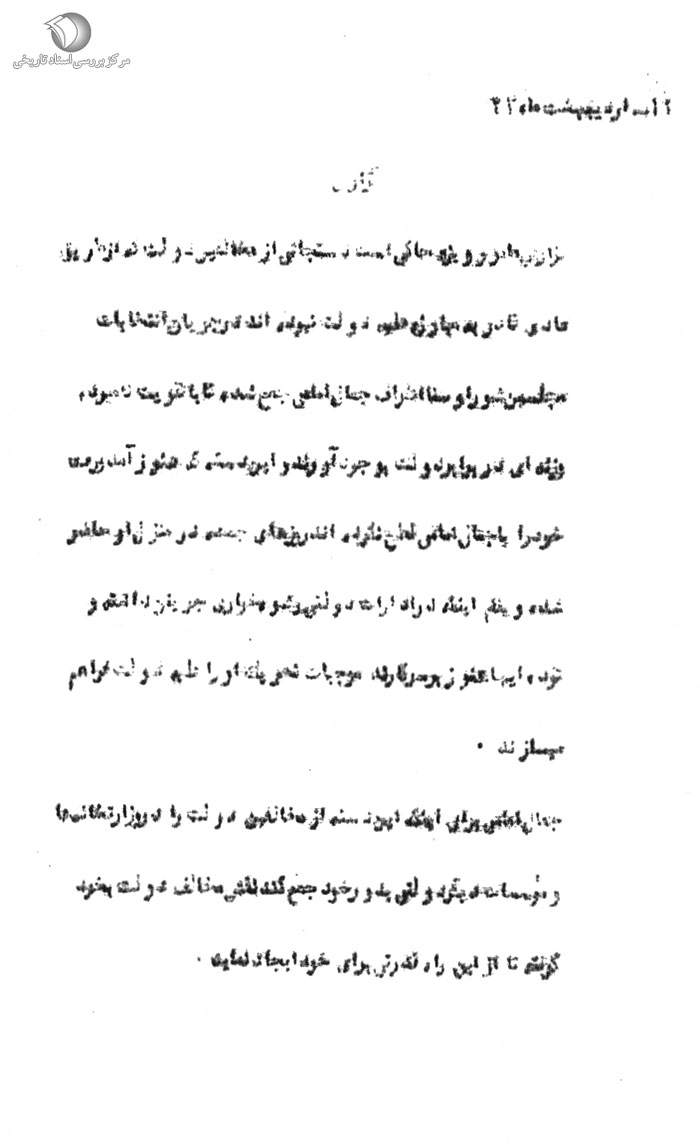 مرکز بررسی اسناد تاریخی
اردیبهشت ماه
گزارش
حاکی است دستجاتی از مخالفین دولت که از طریق
عادی قادر به مبارزه علیه دولت نبوده اند در جریان انتخابات
مجلسین شورا و سنا اطراف جمال امامی جمع شده تا با تقویت نامبرده
وزنه ای در برابر دولت بوجود آورند و این دسته که هنوز آمد
خود را با جمال امامی قطع نکرده اند روزهای جمعه در منزل او حاضر
شده و بعنوان اینکه در ادارات دولتی رشوه خواری جریان داشته و
توده ایها هنوز بر سر کارند موجبات تحریک او را علیه دولت فراهم
میسازند .
جمال امامی برای اینکه این دسته از مخالفین دولت را در وزارتخانه ها
و مؤسسات دیگر دولتی بدور خود جمع کند نقش مخالف دولت بخود
گرفته تا از این راه قدرتی برای خود ایجاد نماید .